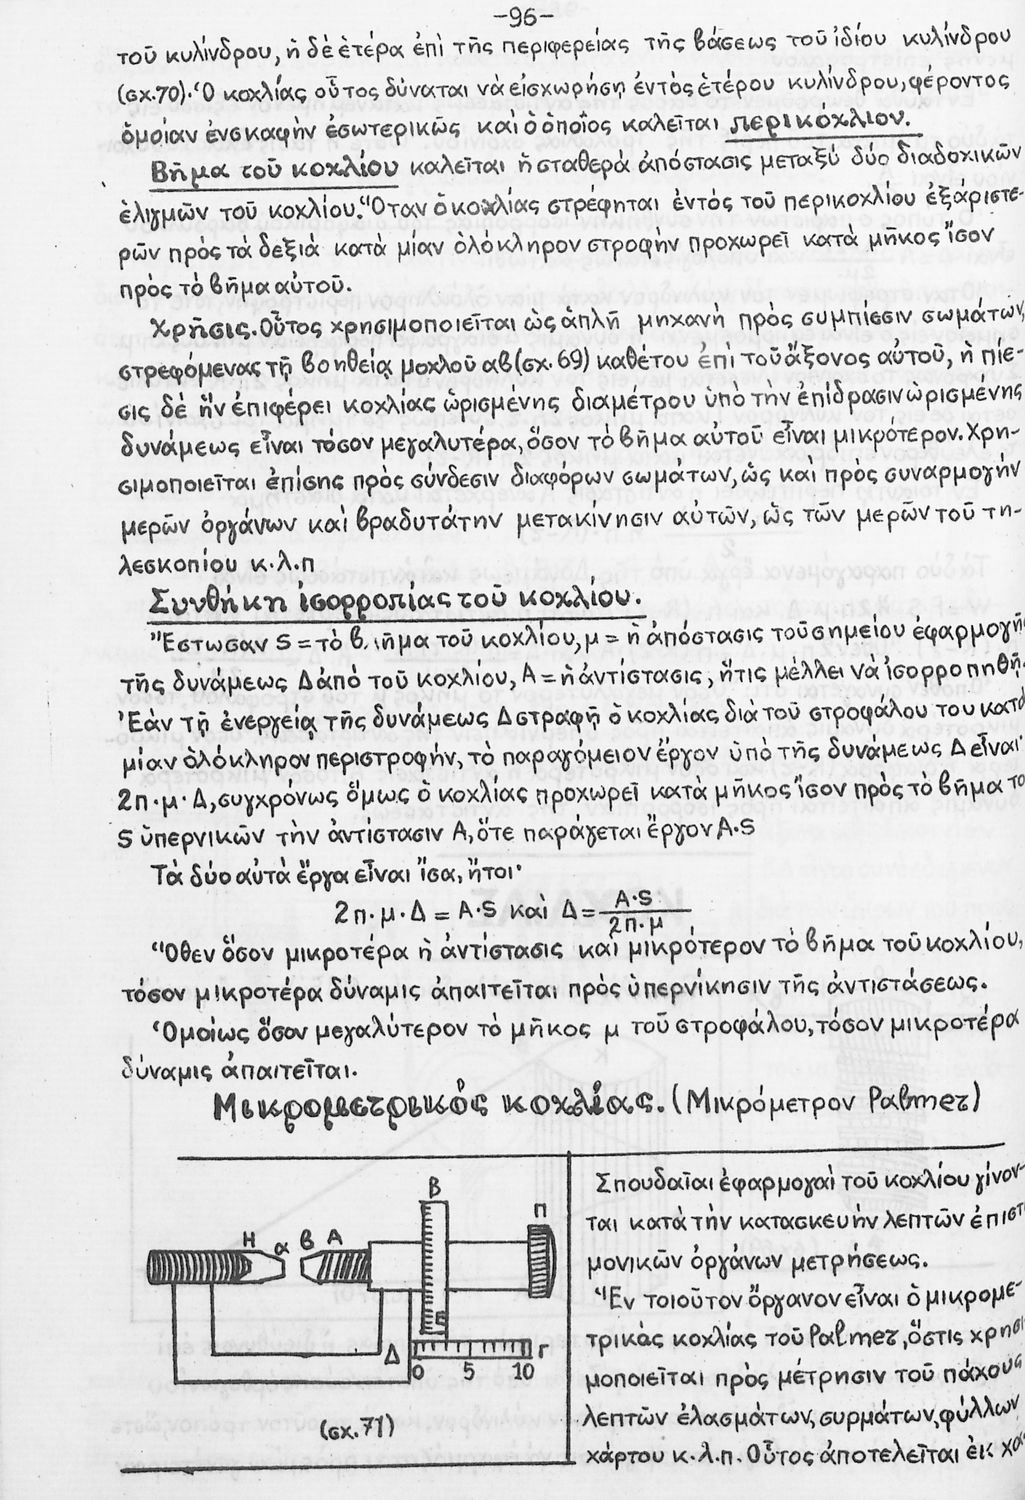 -96-
τοῦ κυλίνδρου, ἡ δὲ ἑτέρα ἐπὶ τῆς περιφερείας τῆς βάσεως τοῦ ἰδίου κυλίνδρου
(σχ.70). Ὁ κοχλίας οὗτος δύναται νὰ εἰσχωρήσῃ ἐντὸς ἑτέρου κυλίνδρου, φέροντος
ὁμοίαν ἐνσκαφὴν ἐσωτερικῶς καὶ ὁ ὁποῖος καλεῖται περικόχλιον.
Βῆμα τοῦ κοχλίου καλεῖται ἡ σταθερὰ ἀπόστασις μεταξὺ δύο διαδοχικῶν
ἑλιγμῶν τοῦ κοχλίου. Ὅταν ὁ κοχλίας στρέφηται ἐντὸς τοῦ περικοχλίου ἐξ ἀριστε-
ρῶν πρὸς τὰ δεξιὰ κατὰ μίαν ὁλόκληρον στροφὴν προχωρεῖ κατὰ μῆκος ἴσον
πρὸς τὸ βῆμα αὐτοῦ.
Χρῆσις. Οὗτος χρησιμοποιεῖται ὡς ἁπλῆ μηχανὴ πρὸς συμπίεσιν σωμάτων,
στρεφόμενας τῇ βοηθείᾳ μοχλοῦ αβ (σχ. 69) καθέτου ἐπὶ τοῦ ἄξονος αὐτοῦ, ἡ πίε-
σις δὲ ἣν ἐπιφέρει κοχλίας ὡρισμένης διαμέτρου ὑπὸ τὴν ἐπίδρασιν ὡρισμένης
δυνάμεως εἶναι τόσον μεγαλυτέρα, ὅσον τὸ βῆμα αὐτοῦ εἶναι μικρότερον. Χρη-
σιμοποιεῖται ἐπίσης πρὸς σύνδεσιν διαφόρων σωμάτων, ὡς καὶ πρὸς συναρμογὴν
μερῶν ὀργάνων καὶ βραδυτάτην μετακίνησιν αὐτῶν, ὡς τῶν μερῶν τοῦ τη-
λεσκοπίου κ.λ.π
Συνθήκη ἰσορροπίας τοῦ κοχλίου.
Ἔστωσαν S = τὸ βῆμα τοῦ κοχλίου, μ = ἡ ἀπόστασις τοῦ σημείου ἐφαρμογῆ
τῆς δυνάμεως Δ ἀπὸ τοῦ κοχλίου, Α = ἡ ἀντίστασις, ἥτις μέλλει νὰ ἰσορροπηθῇ.
Ἐὰν τῇ ἐνεργείᾳ τῆς δυνάμεως Δ στραφῇ ὁ κοχλίας διὰ τοῦ στροφάλου του κατὰ
μίαν ὁλόκληρον περιστροφήν, τὸ παραγόμειον ἔργον ὑπὸ τῆς δυνάμεως Δ εἶναι
2π·μ·Δ, συγχρόνως ὅμως ὁ κοχλίας προχωρεῖ κατὰ μῆκος ἴσον πρὸς τὸ βῆμα το
S ὑπερνικῶν τὴν ἀντίστασιν Α, ὅτε παράγεται ἔργον Α·S
Τὰ δύο αὐτὰ ἔργα εἶναι ἴσα, ἤτοι·
2π·μ·Δ = Α·S καὶ Δ = Α·S / 2π·μ
Ὅθεν ὅσον μικροτέρα ἡ ἀντίστασις καὶ μικρότερον τὸ βῆμα τοῦ κοχλίου,
τόσον μικροτέρα δύναμις ἀπαιτεῖται πρὸς ὑπερνίκησιν τῆς ἀντιστάσεως.
Ὁμοίως ὅσον μεγαλύτερον τὸ μῆκος μ τοῦ στροφάλου, τόσον μικροτέρα
δύναμις ἀπαιτεῖται.
Μικρομετρικὸς κοχλίας. (Μικρόμετρον Palmer)
Β
Π
Η α β Α
Ε
Δ
Γ
0 5 10
(σχ.71)
Σπουδαῖαι ἐφαρμογαὶ τοῦ κοχλίου γίνον-
ται κατὰ τὴν κατασκευὴν λεπτῶν ἐπιστ
μονικῶν ὀργάνων μετρήσεως.
Ἓν τοιοῦτον ὄργανον εἶναι ὁ μικρομε-
τρικὰς κοχλίας τοῦ Palmer, ὅστις χρησι
μοποιεῖται πρὸς μέτρησιν τοῦ πάχους
λεπτῶν ἐλασμάτων, συρμάτων, φύλλων
χάρτου κ.λ.π. Οὗτος ἀποτελεῖται ἐκ χα-